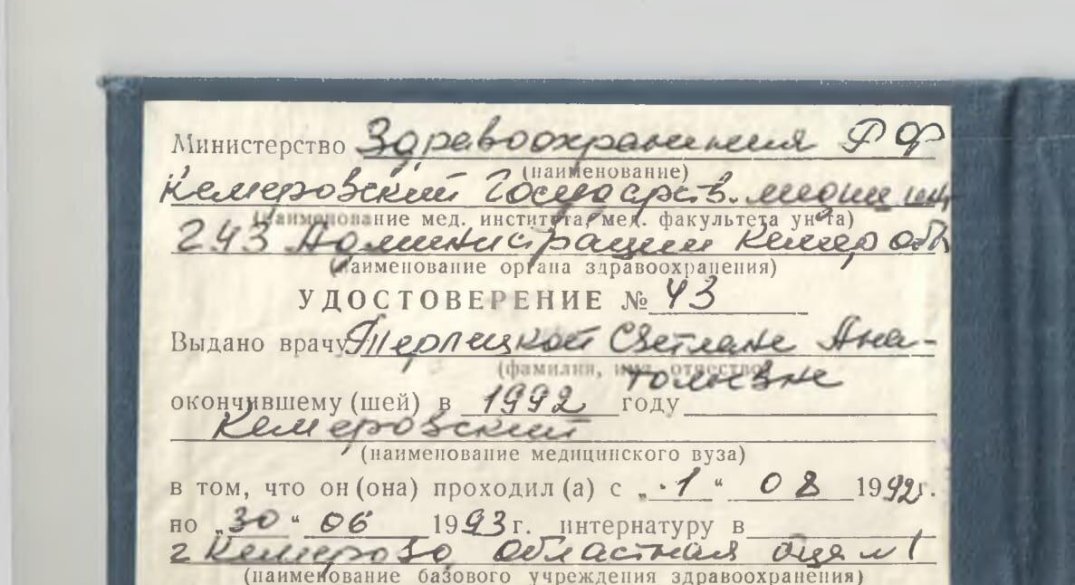 Министерство Здравоохранения РФ
(наименование)
Кемеровский Государств. медицин
(наименование мед. института, мед. факультета ун-та)
Администрации Кемер обл
(наименование органа здравоохранения)
УДОСТОВЕРЕНИЕ № 43
Выдано врачу Терлецкой Светлане Ана-
(фамилия, имя, отчество)
тольевне
окончившему (шей) в 1992 году
Кемеровский
(наименование медицинского вуза)
в том, что он (она) проходил (а) с „1“ 08 1992г.
по „30“ 06 1993 г. интернатуру в
г Кемерово, областная
(наименование базового учреждения здравоохранения)